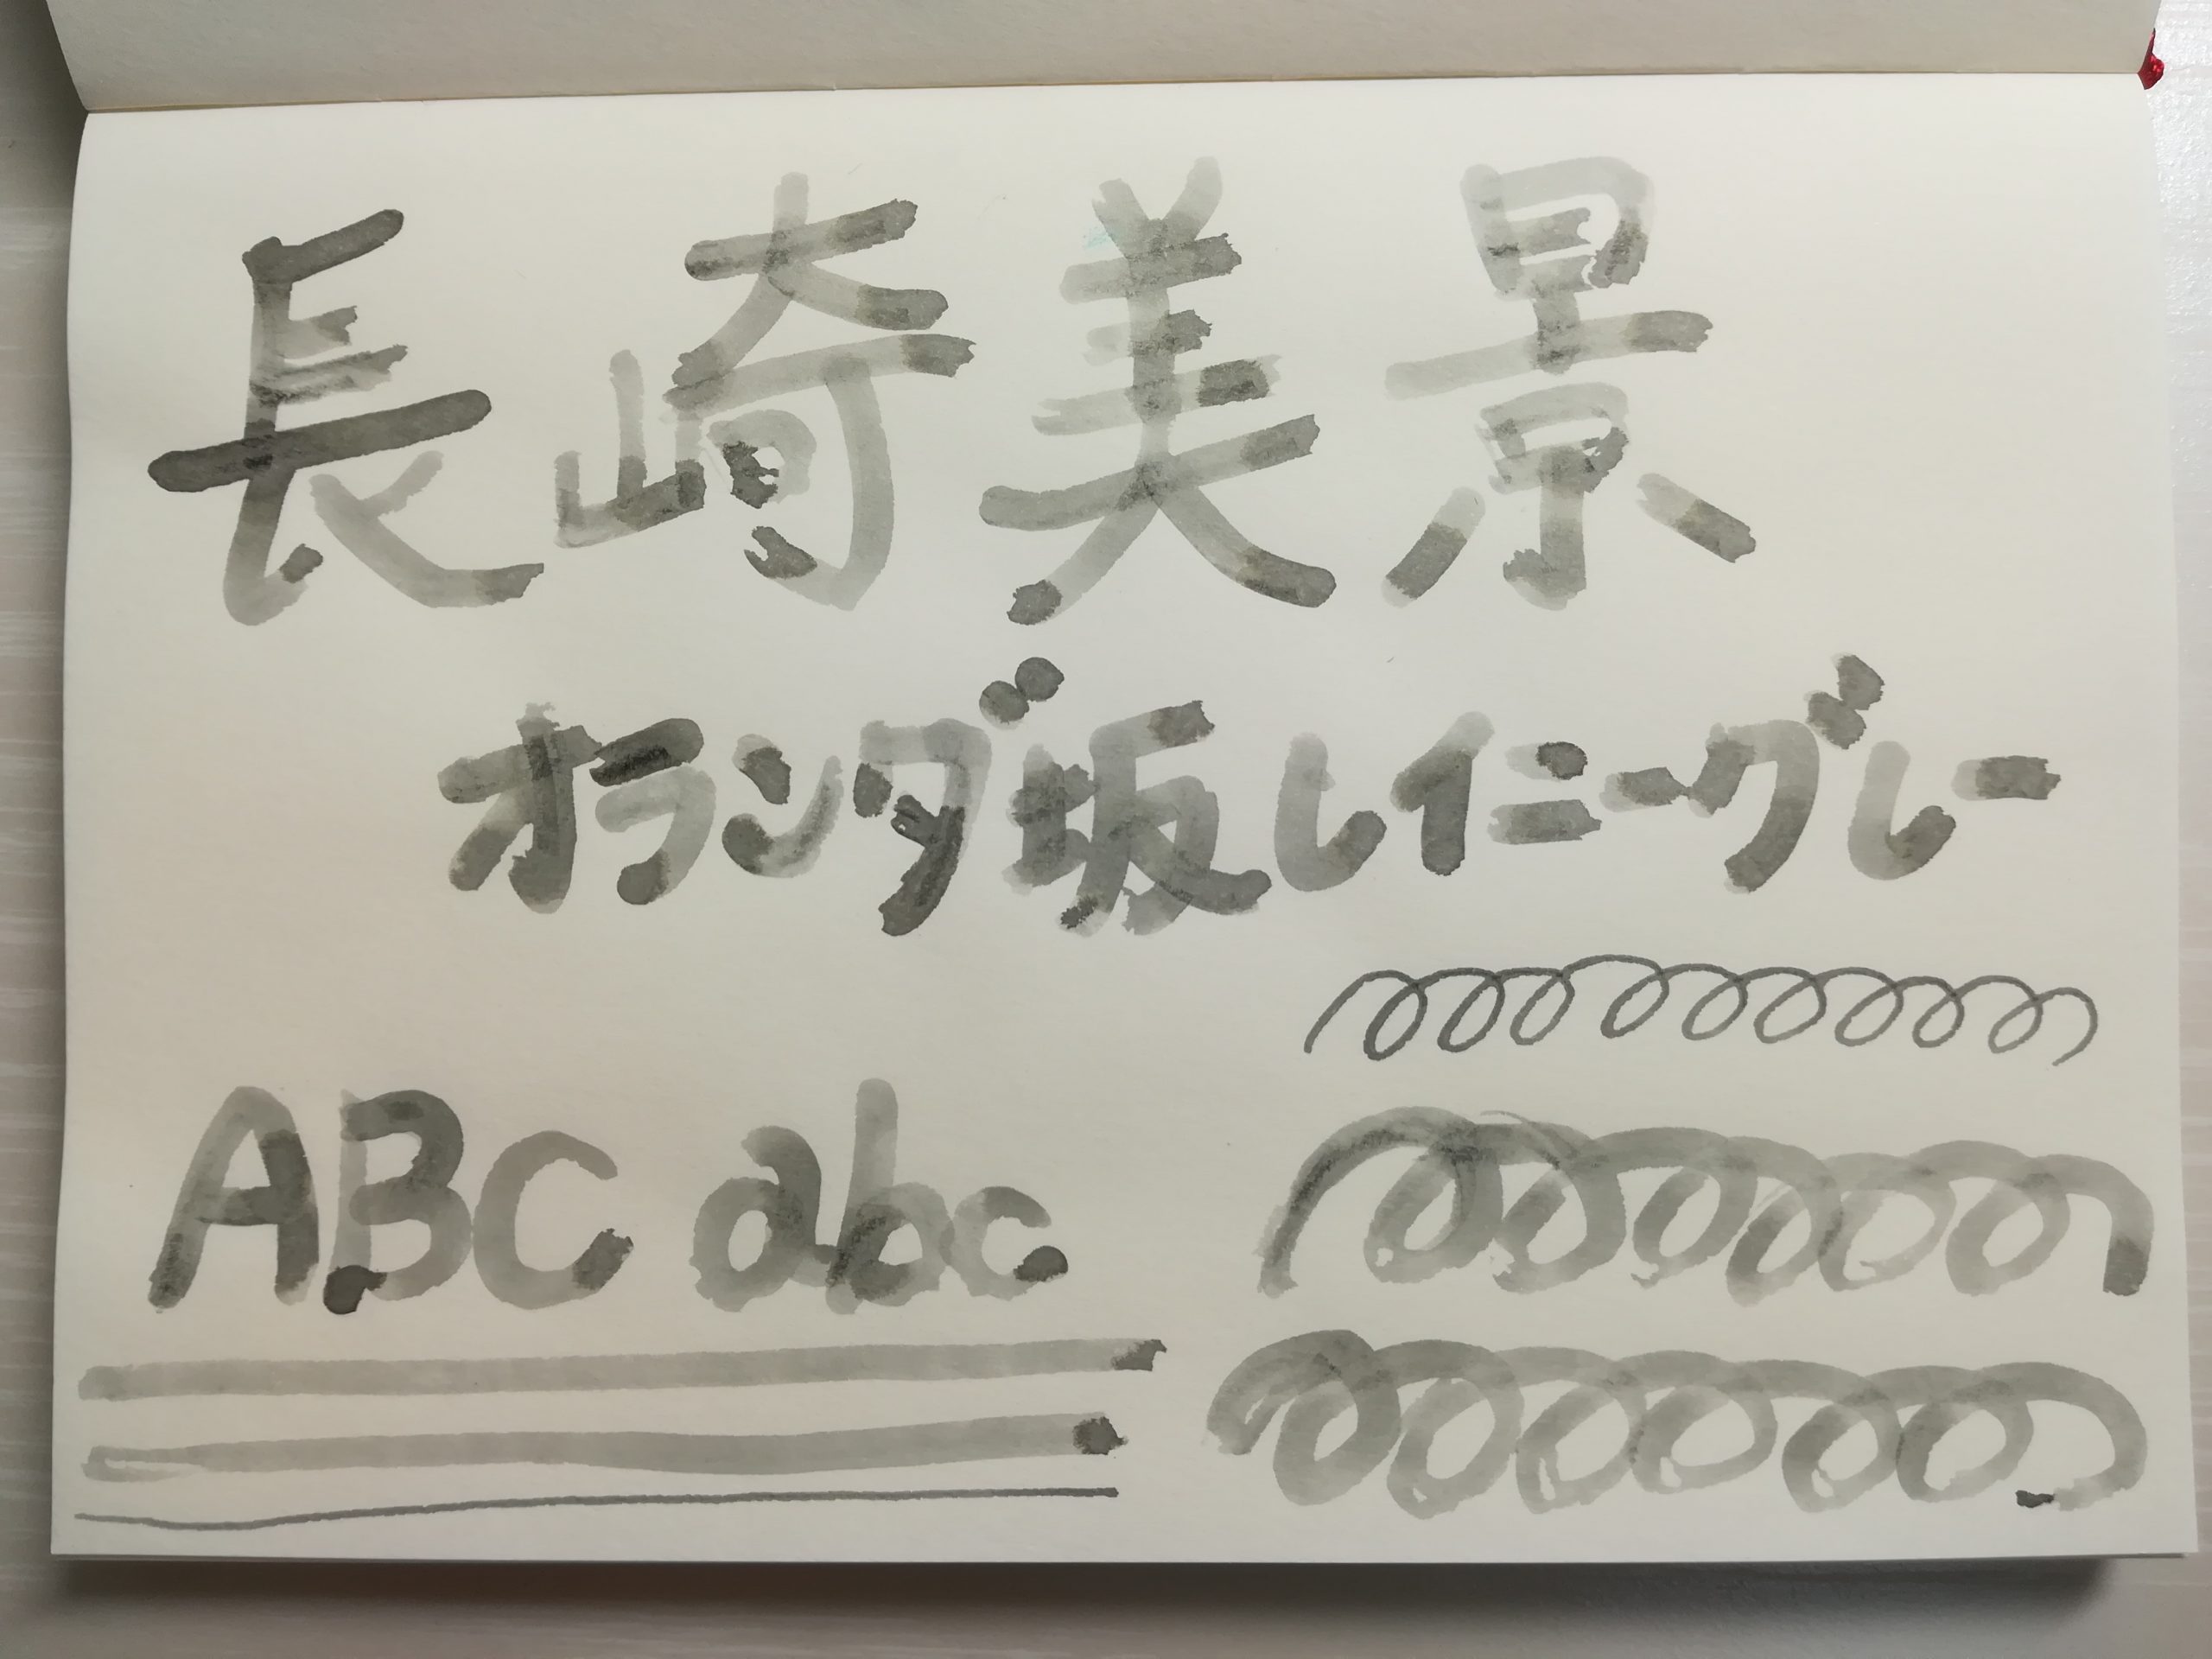 長崎美景
オランダ坂レイニーグレー
ABC abc